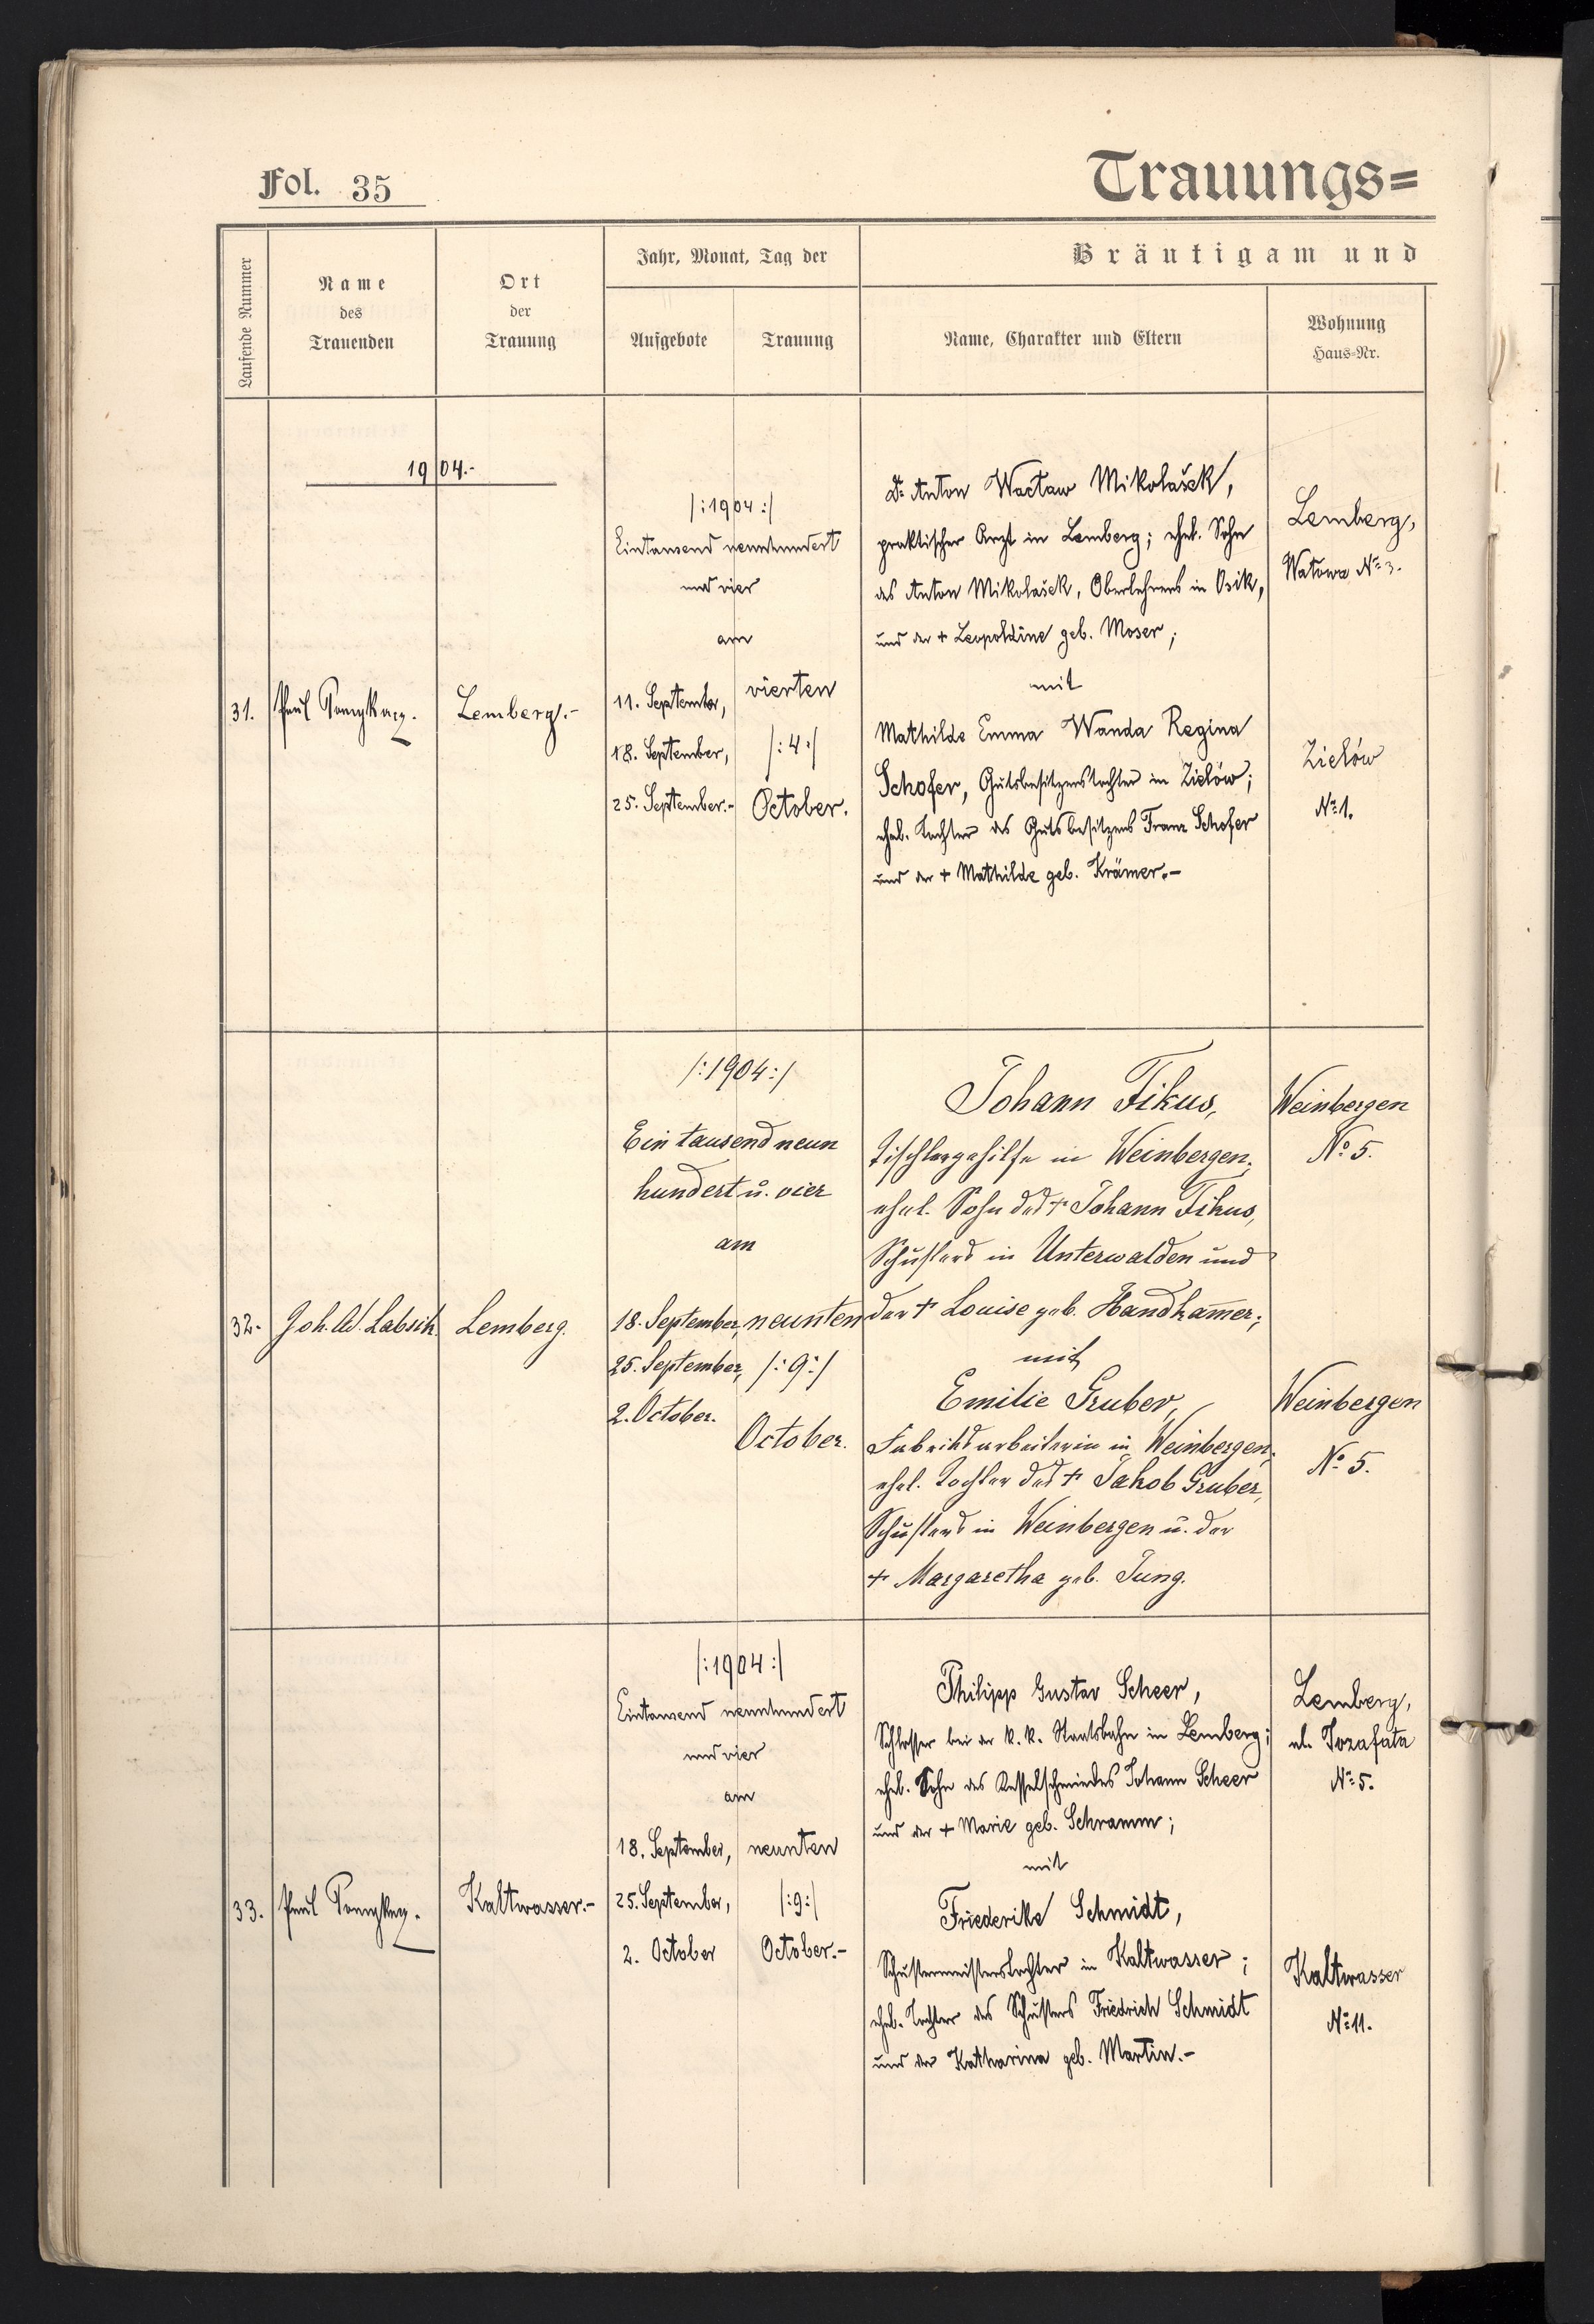 Fol. 35
Trauungs=
Laufende Nummer
Name
des
Trauenden
Ort
der
Trauung
Jahr, Monat, Tag der
Aufgebote
Trauung
Bräutigam und
Name, Charakter und Eltern
Wohnung
Haus=Nr.
1904.-
31.
Paul
Lemberg.-
/:1904:/
Eintausend neunhundert
und vier
am
11. September,
18. September,
25. September.-
vierten
/:4:/
October.
Dr Anton Wacław Mikolašek,
praktischer Arzt in Lemberg; ehel. Sohn
des Anton Mikolašek, Oberlehrers in Osik,
und der + Leopoldine geb. Moser;
mit
Mathilde Emma Wanda Regina
Schofer, Gutsbesitzerstochter in Zielów;
ehel. Tochter des Gutsbesitzers Franz Schofer
und der + Mathilde geb. Krämer.-
Lemberg,
Watowa No 3.
Zielów
No 1.
32.
Joh. Ad. Labsik
Lemberg.
/:1904:/
Ein tausend neun
hundert u. vier
am
18. September,
25. September,
2. October.
neunten
/:9:/
October.
Johann Fikus,
Tischlergehilfe in Weinbergen,
ehel. Sohn des + Johann Fikus,
Schusters in Unterwalden und
der + Louise geb. Handkam̄er;
mit
Emilie Gruber,
Fabriksarbeiterin in Weinbergen;
ehel. Tochter des + Jakob Gruber,
Schusters in Weinbergen u. der
+ Margaretha geb. Jung.
Weinbergen
No 5.
Weinbergen
No 5.
33.
Paul
Kaltwasser.-
/:1904:/
Eintausend neunhundert
und vier
am
18. September,
25. September,
2. October
neunten
/:9:/
October.-
Philipp Gustav Scheer,
Schlosser bei der k. k. Staatsbahn in Lemberg;
ehel. Sohn des Kesselschmiedes Johann Scheer
und der + Marie geb. Schramm;
mit
Friederike Schmidt,
Schustermeisterstochter in Kaltwasser;
ehel. Tochter des Schusters Friedrich Schmidt
und der Katharina geb. Martin.-
Lemberg,
ul. Jozafata
No 5.
Kaltwasser
No 11.